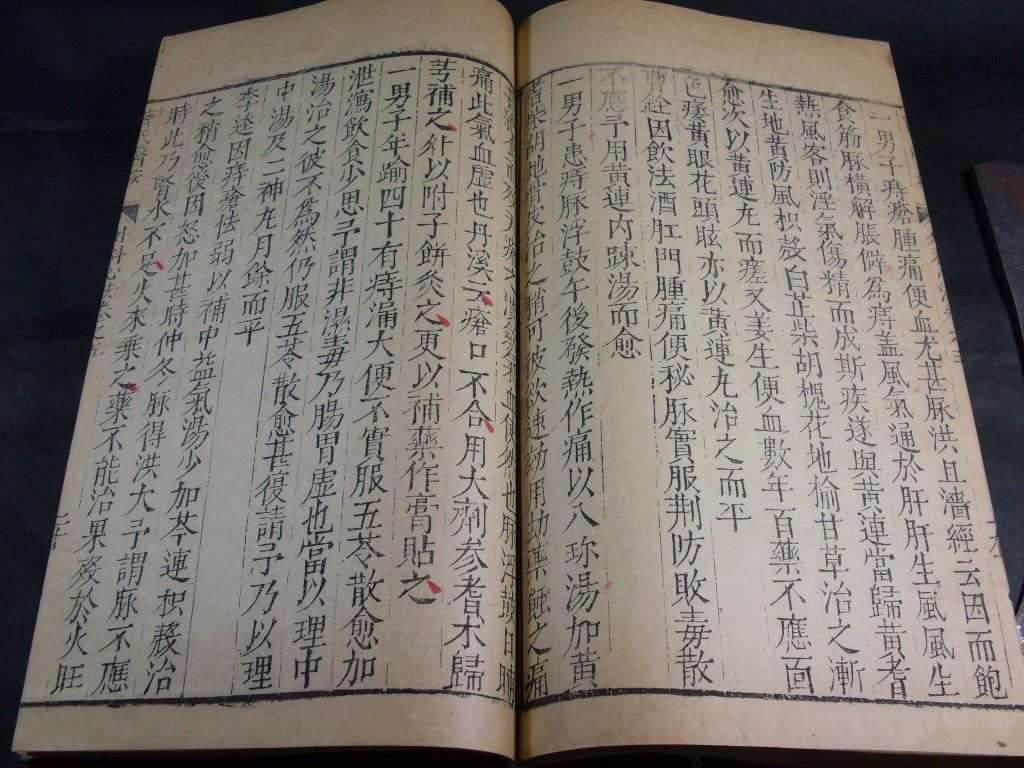 一男子痔瘡腫痛便血尤甚脉洪且濇經云因而飽
食筋脉橫解腸僻為痔蓋風氣通於肝肝生風風生
熱風客則淫氣傷精而成斯疾遂與黃連當歸黃芪
生地黃防風枳殼白芷柴胡槐花地榆甘草治之漸
愈次以黃連丸而瘥又姜生便血數年百藥不應面
色痿黃眼花頭眩亦以黃連丸治之而平
因飲法酒肛門腫痛便秘脉實服荆防敗毒散
不應予用黃連內踈湯而愈
一男子患痔脉浮鼓午後發熱作痛以八珎湯加黃
芪柴胡地骨皮治之稍可彼欲速効用劫藥蝕之痛
痛此氣血虛也丹溪云瘡口不合用大劑參芪术歸
芎補之外以附子餅灸之更以補藥作膏貼之
一男子年踰四十有痔漏大便不實服五苓散愈加
泄瀉飲食少思予謂非濕毒乃腸胃虛也當以理中
湯治之彼不為然仍服五苓散愈甚復請予乃以理
中湯及二神丸月餘而平
李逵因痔瘡怯弱以補中益氣湯少加芩連枳殼治
之稍愈後因怒加甚時仲冬脉得洪大予謂脉不應
時此乃腎水不足火來乘之藥不能治果殁於火旺